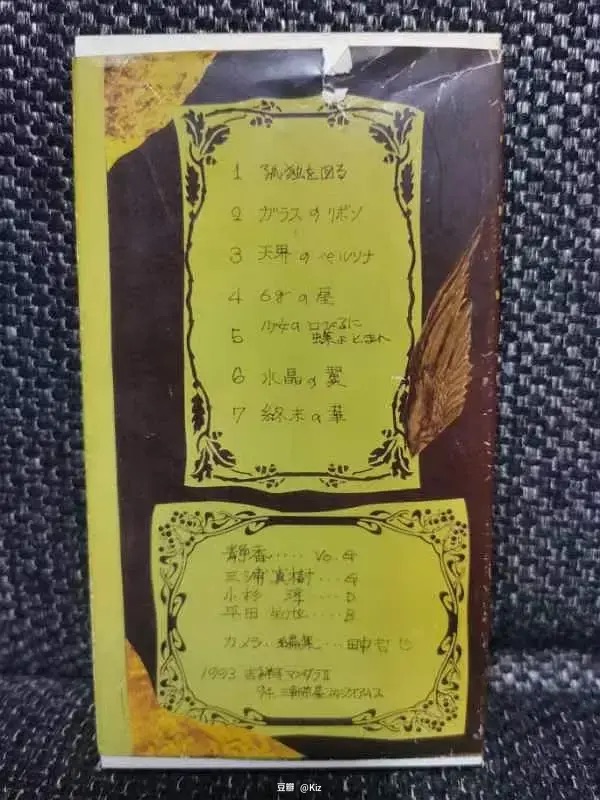 1 孤独を図る
2 ガラスのリボン
3 天界のペルソナ
4 6gの星
5 少女の口びるに
蝶よとまれ
6 水晶の翼
7 終末の華
静香・・・・・ Vo. G
三浦真樹・・・G
小杉 淳・・・・D
平田 ・・・・B
カメラ. 編集・・・田中
1993 吉祥寺マンダラⅡ
94. 三軒茶屋
豆瓣 @Kiz